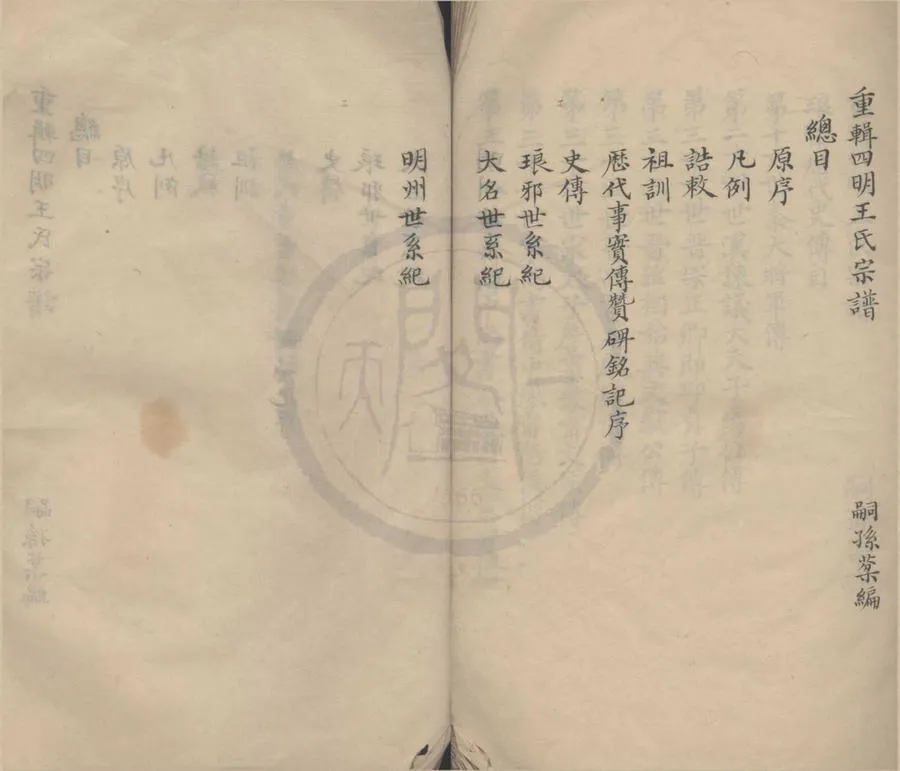 重輯四明王氏宗譜
嗣孫蕖編
總目
原序
凡例
誥敕
祖訓
歷代事實傳贊碑銘記序
史傳
琅邪世系紀
大名世系紀
明州世系紀